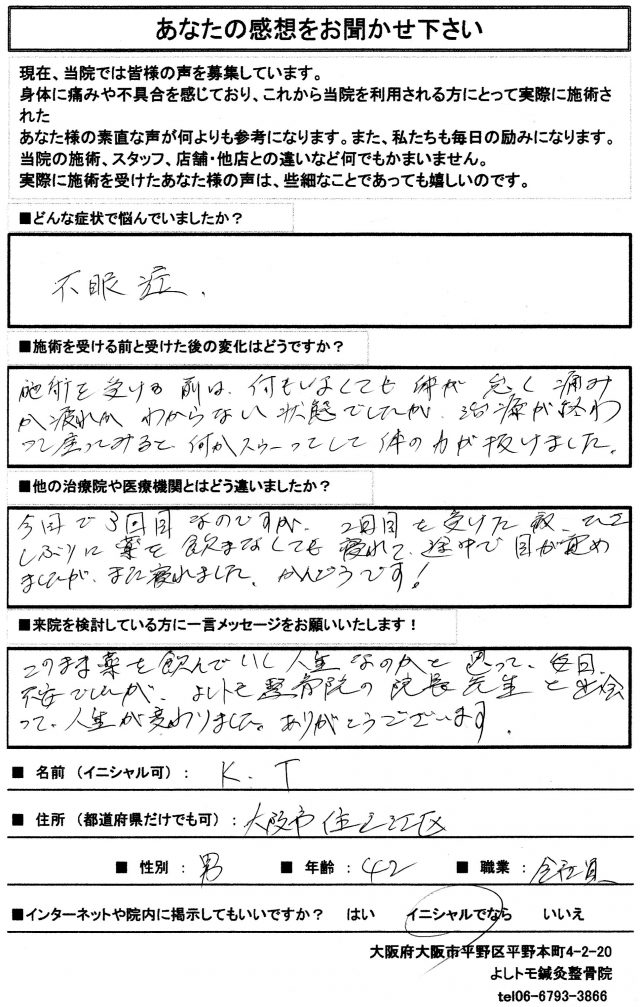 あなたの感想をお聞かせ下さい
現在、当院では皆様の声を募集しています。
身体に痛みや不具合を感じており、これから当院を利用される方にとって実際に施術さ
れた
あなた様の素直な声が何よりも参考になります。また、私たちも毎日の励みになります。
当院の施術、スタッフ、店舗・他店との違いなど何でもかまいません。
実際に施術を受けたあなた様の声は、些細なことであっても嬉しいのです。
■どんな症状で悩んでいましたか？
不眠症、
■施術を受ける前と受けた後の変化はどうですか？
施術を受ける前は、何もしなくても体が怠く痛み
か疲れか わからない状態でしたが、治療が終わ
って座ってみると何かスゥーってして体の力が抜けました。
■他の治療院や医療機関とはどう違いましたか？
今回で3回目なのですが、2回目を受けた夜、ひさ
しぶりに薬を飲まなくても寝れて、途中で目が覚め
ましたが、また寝れました。かんどうです！
■来院を検討している方に一言メッセージをお願いいたします！
このまま薬を飲んでいく人生なのかと思って、毎日、
不安でしたが、よしトモ整骨院の院長先生と出会
って、人生が変わりました。ありがとうございます。
■ 名前（イニシャル可）： K.T
■ 住所（都道府県だけでも可）：大阪市住之江区
■ 性別：男 ■ 年齢：42 ■ 職業：会社員
■インターネットや院内に掲示してもいいですか？ はい イニシャルでなら いいえ
大阪府大阪市平野区平野本町4-2-20
よしトモ鍼灸整骨院
tel06-6793-3866